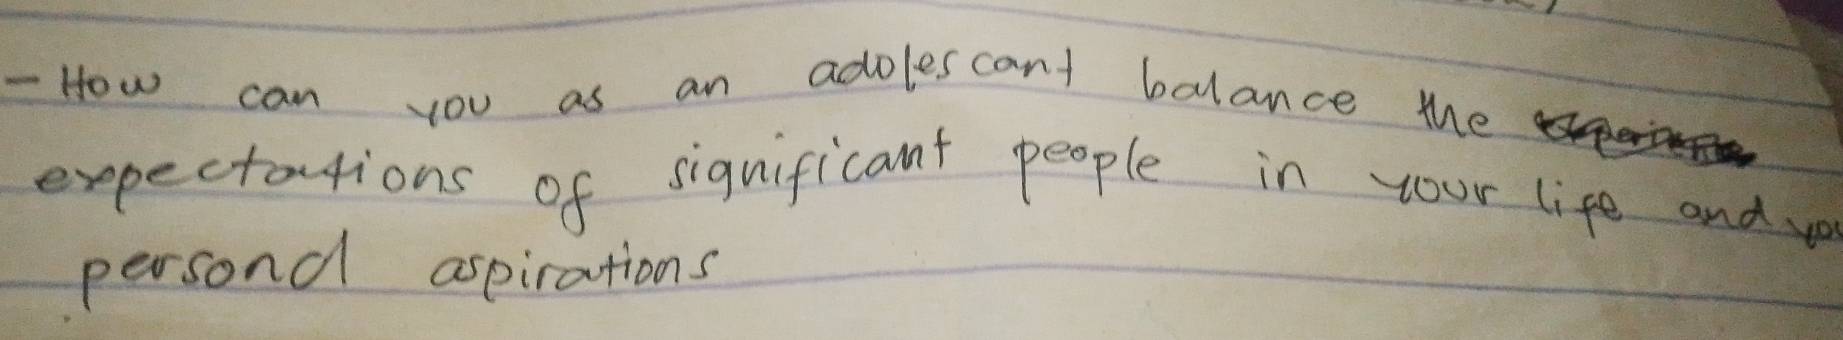 - How can you as an adolescant balance the
expectations of significant people in your life and
personal aspirations